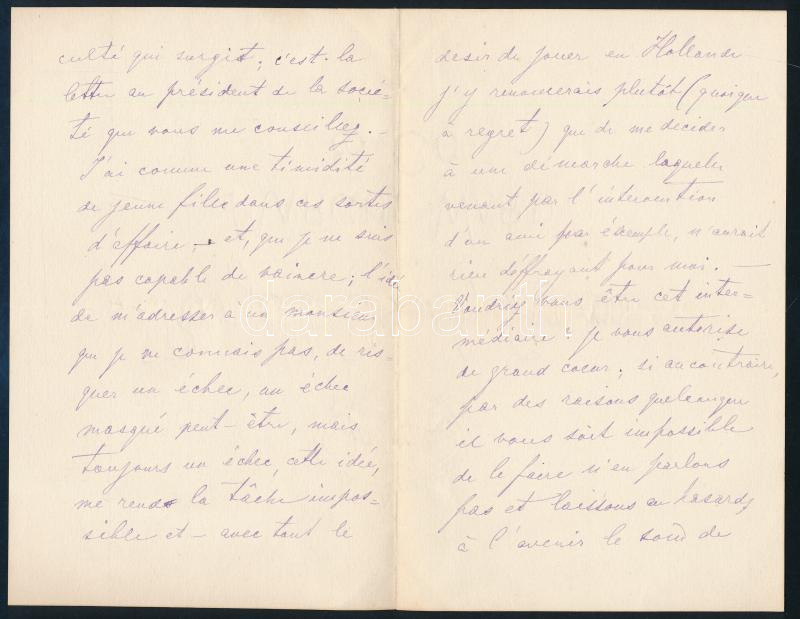 culté qui surgit; c'est la
lettre au président de la socié=
té que vous me conseillez. —
J'ai comme une timidité
de jeune fille dans ces sortes
d'affaire, — et, que je ne suis
pas capable de vaincre; l'idé
de m'adresser a un monsieur
que je ne connais pas, de ris-
quer un échec, un échec
masqué peut-être, mais
toujours un échec, cette idée,
me rends la tâche impos=
sible et — avec tout le
desir de jouer en Hollande
j'y renoncerais plutôt (quoique
a regret) que de me decider
à une démarche laquelle
venant par l'intervention
d'un ami par éxemple, n'aurait
rien d'éffrayant pour moi. —
Voudriez vous être cet inter-
médiaire? je vous autorise
de grand coeur; si au contraire,
par des raisons quelconques
il vous soit impossible
de le faire n'en parlons
pas et laissons au hasard,
à l'avenir le soin de
darabanth